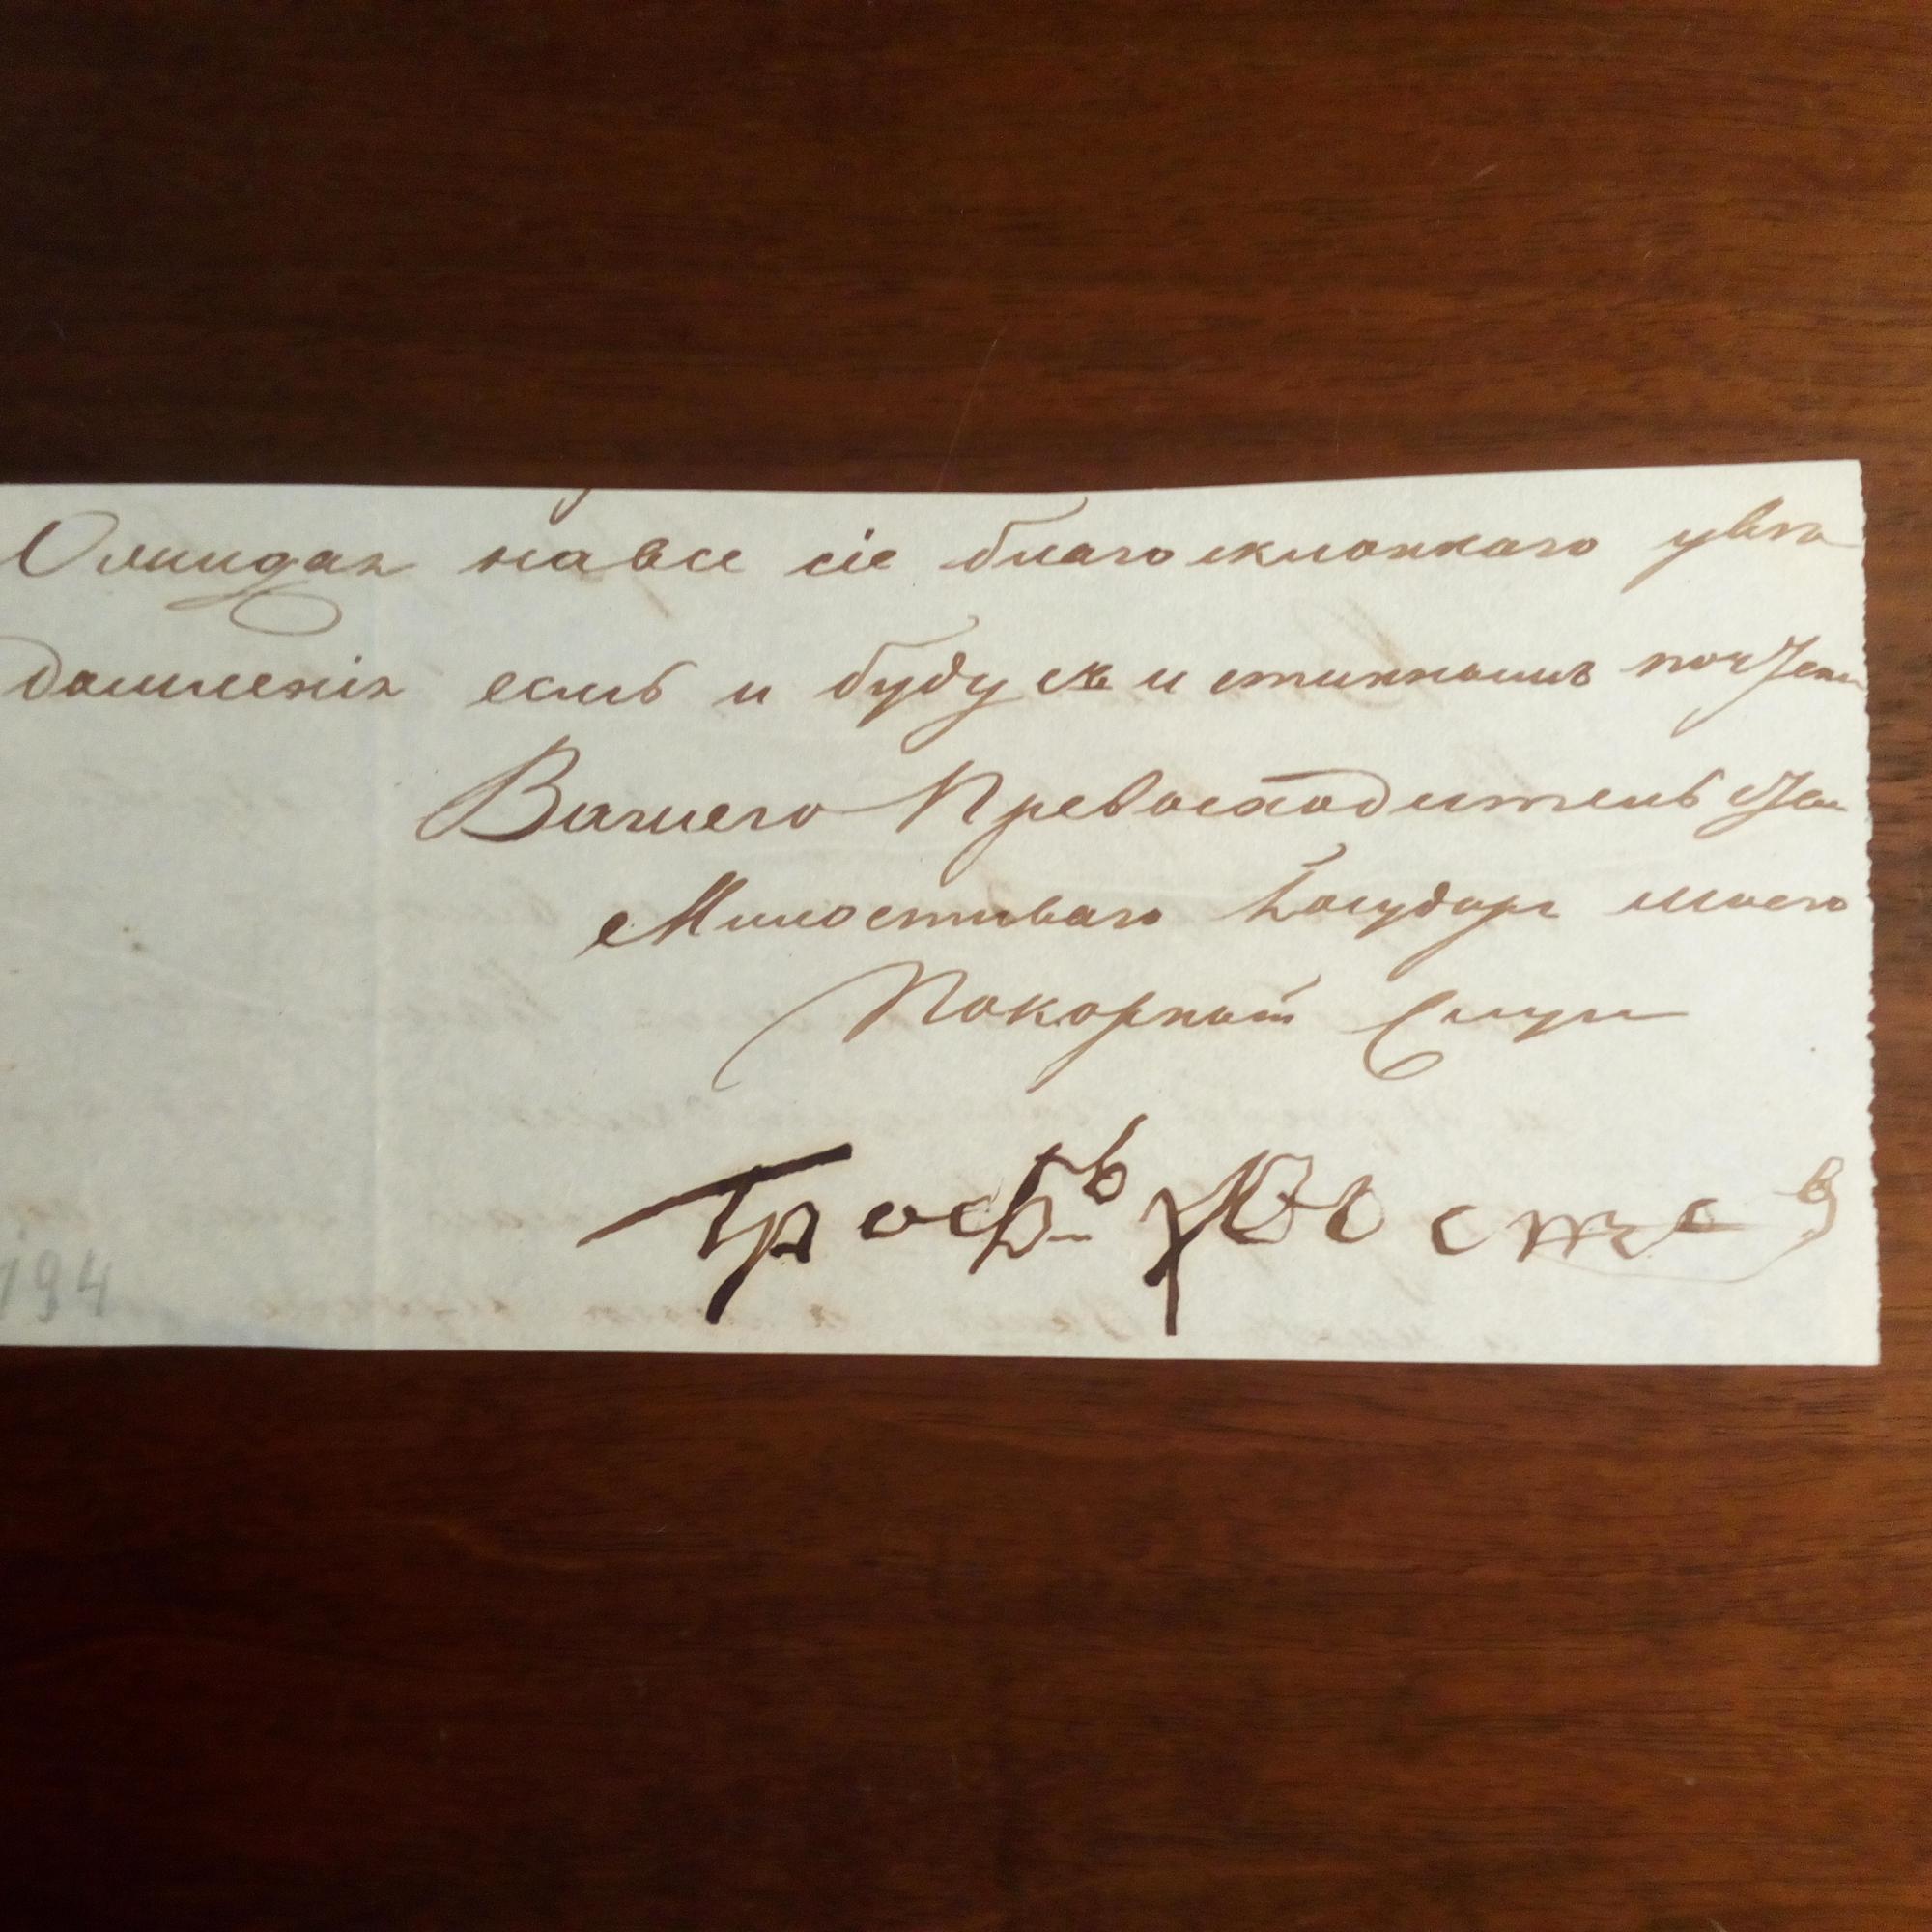 Ожидая навсе сіе благосклоннаго увѣ
домленія есмь и буду съ истиннымъ почтен
Вашего Превосходительства
Милостиваго Государя моего
Покорный Слуга
Графъ Хвостовъ
194